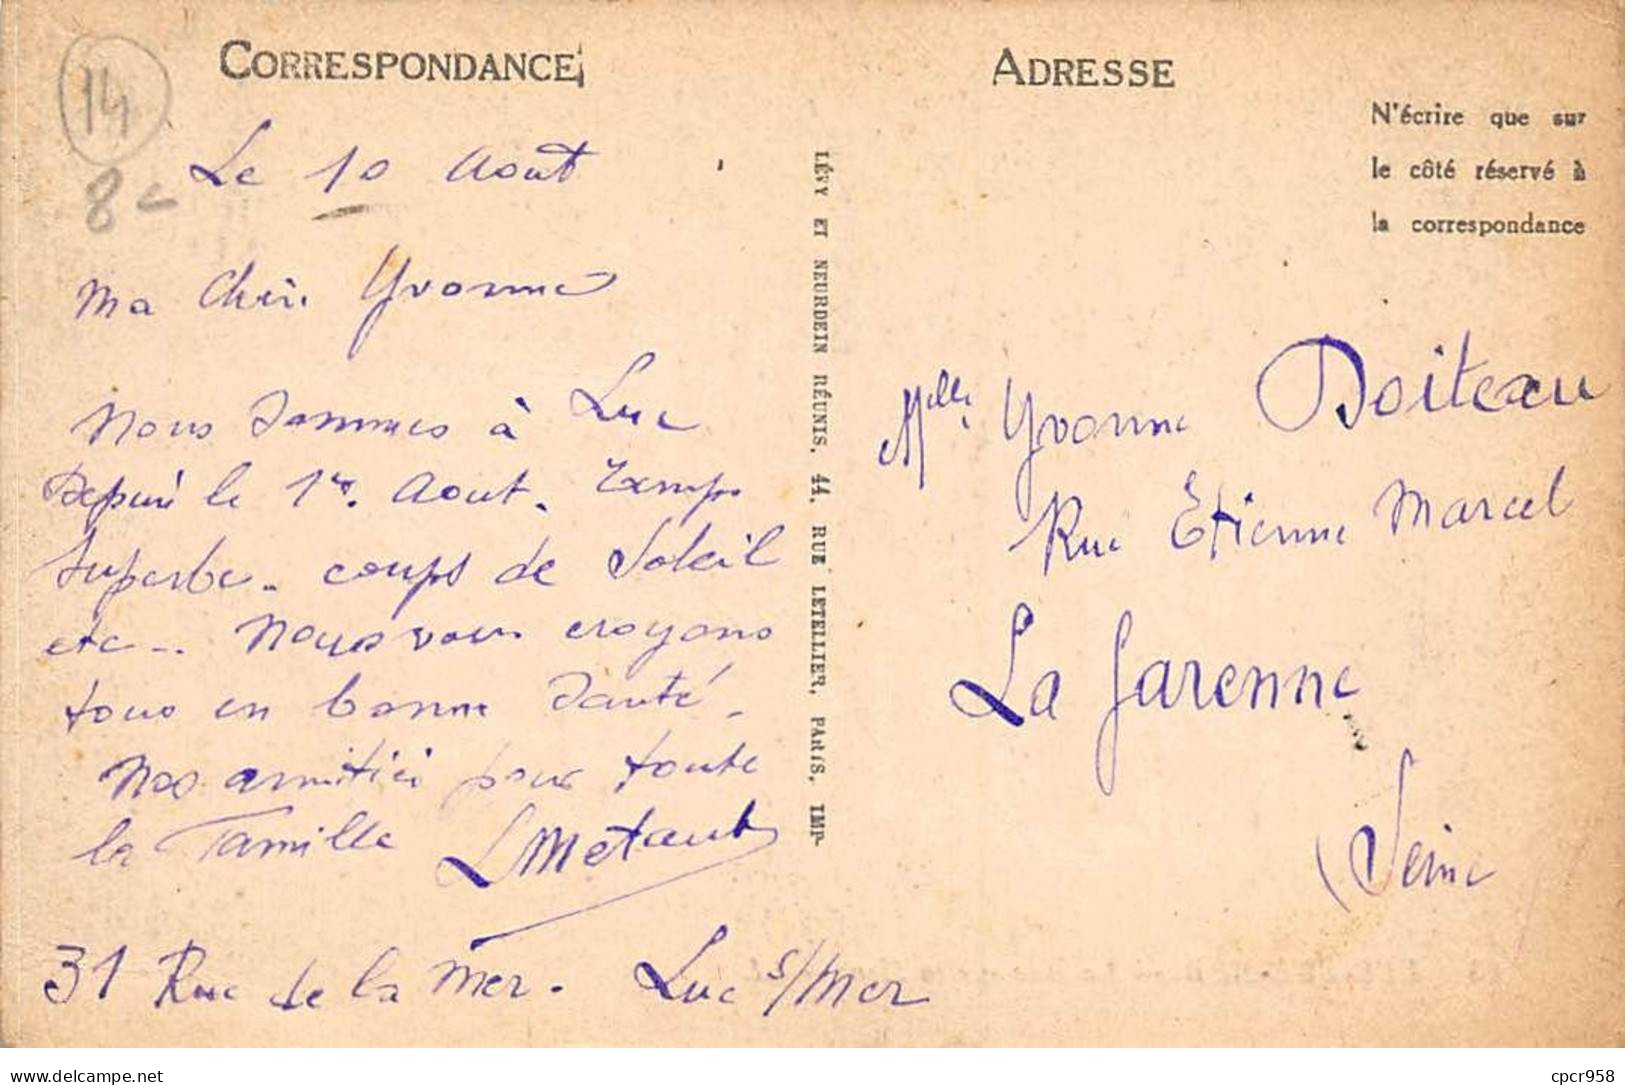 14
8
CORRESPONDANCE
Le 10 Aout
Ma Chère Yvonne
Nous sommes à Luc
Depuis le 1er. Aout. Temps
Superbe. coups de Soleil
etc... Nous vous croyons
tous en bonne Santé.
Nos amitiés pour toute
la Famille
31 Rue de la Mer. Luc s/Mer
LÉVY ET NEURDEIN RÉUNIS, 44, RUE LETELLIER, PARIS, IMP.
ADRESSE
N'écrire que sur
le côté réservé à
la correspondance
Melle Yvonne Boiteau
Rue Etienne Marcel
La Garenne
Seine
delcampe.net
cpcr958